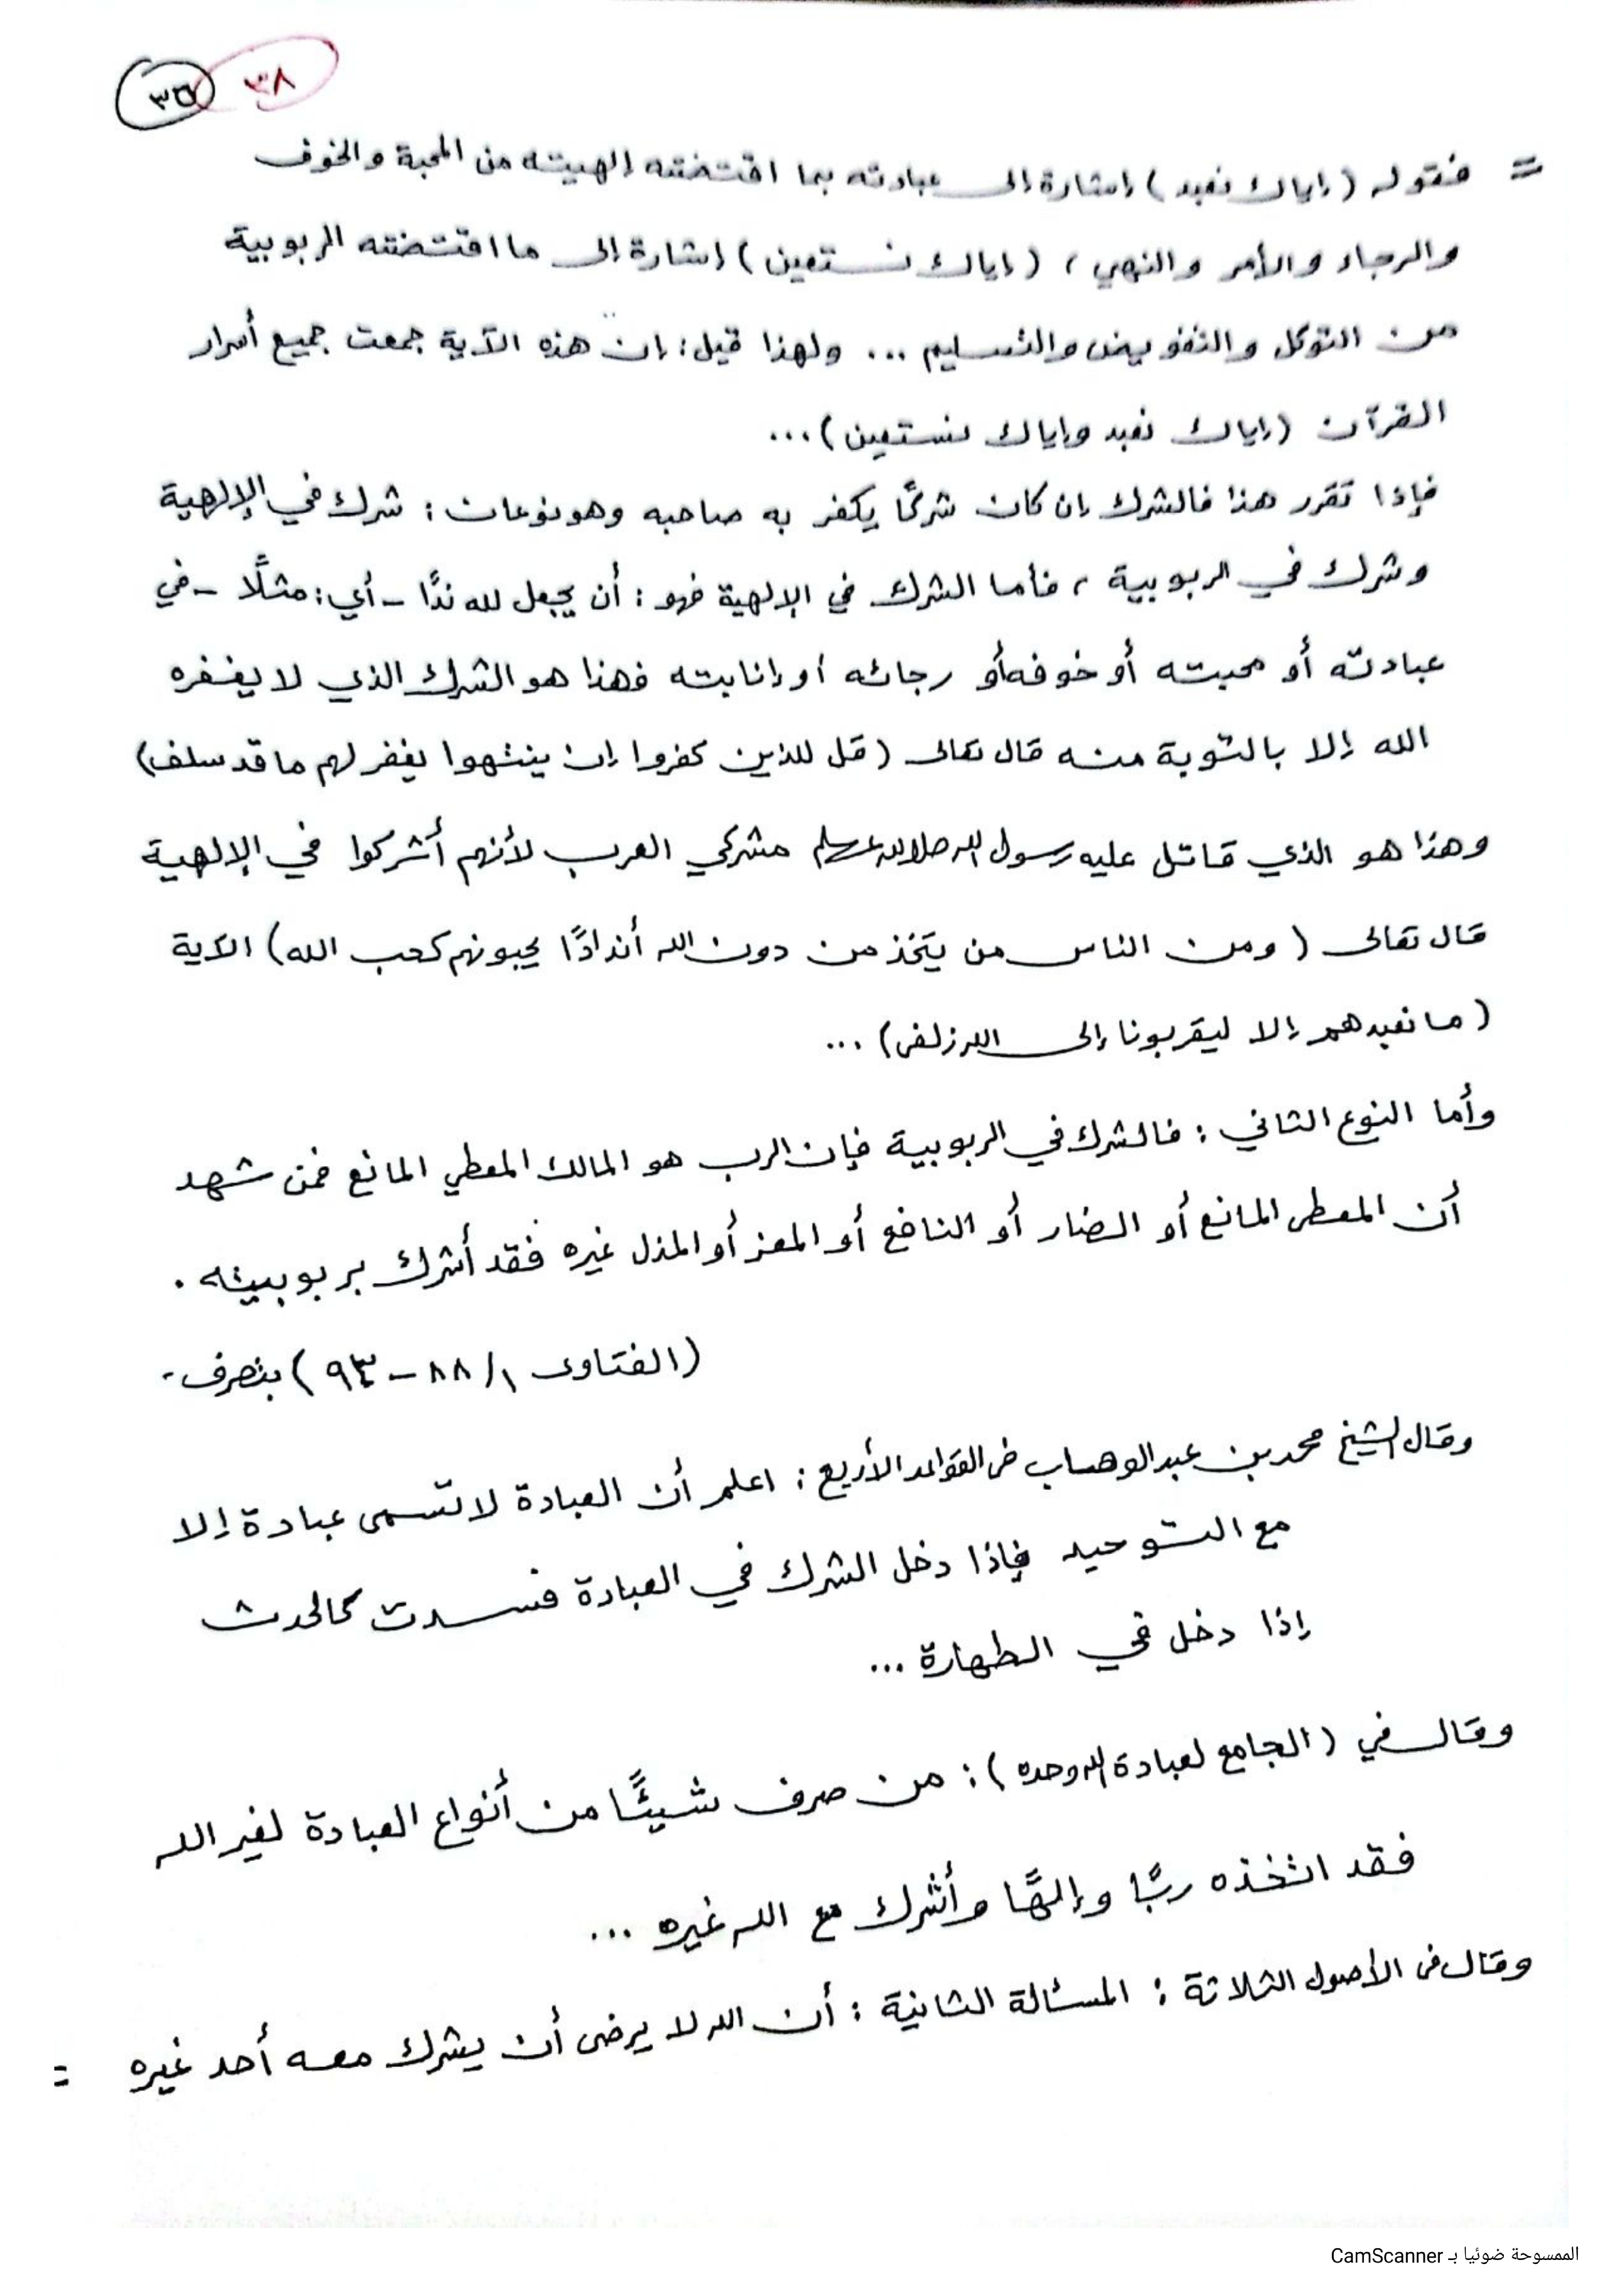 ٣٨ ٣٥
= فقوله (إياك نعبد) إشارة إلى عبادته بما اقتضته إلهيته من المحبة والخوف
والرجاء والأمر والنهي، (إياك نستعين) إشارة إلى ما اقتضته الربوبية
من التوكل والتفويض والتسليم ... ولهذا قيل: إن هذه الآية جمعت جميع أسرار
القرآن (إياك نعبد وإياك نستعين) ...
فإذا تقرر هذا فالشرك إن كان شركًا يكفر به صاحبه وهو نوعان: شرك في الإلهية
وشرك في الربوبية، فأما الشرك في الإلهية فهو: أن يجعل لله ندًا - أي: مثلًا - في
عبادته أو محبته أو خوفه أو رجائه أو إنابته فهذا هو الشرك الذي لا يغفره
الله إلا بالتوبة منه قال تعالى (قل للذين كفروا إن ينتهوا يغفر لهم ما قد سلف)
وهذا هو الذي قاتل عليه رسول الله صلى الله عليه وسلم مشركي العرب لأنهم أشركوا في الإلهية
قال تعالى (ومن الناس من يتخذ من دون الله أندادًا يحبونهم كحب الله) الآية
(ما نعبدهم إلا ليقربونا إلى الله زلفى) ...
وأما النوع الثاني: فالشرك في الربوبية فإن الرب هو المالك المعطي المانع فمن شهد
أن المعطي المانع أو الضار أو النافع أو المعز أو المذل غيره فقد أشرك بربوبيته.
(الفتاوى ١/ ٨٨ - ٩٣) بتصرف.
وقال الشيخ محمد بن عبدالوهاب في القواعد الأربع: اعلم أن العبادة لا تسمى عبادة إلا
مع التوحيد فإذا دخل الشرك في العبادة فسدت كالحدث
إذا دخل في الطهارة ...
وقال في (الجامع لعبادة الله وحده): من صرف شيئًا من أنواع العبادة لغير الله
فقد اتخذه ربًا وإلهًا وأشرك مع الله غيره ...
وقال في الأصول الثلاثة: المسئالة الثانية: أن الله لا يرضى أن يشرك معه أحد غيره =
الممسوحة ضوئيا بـ CamScanner